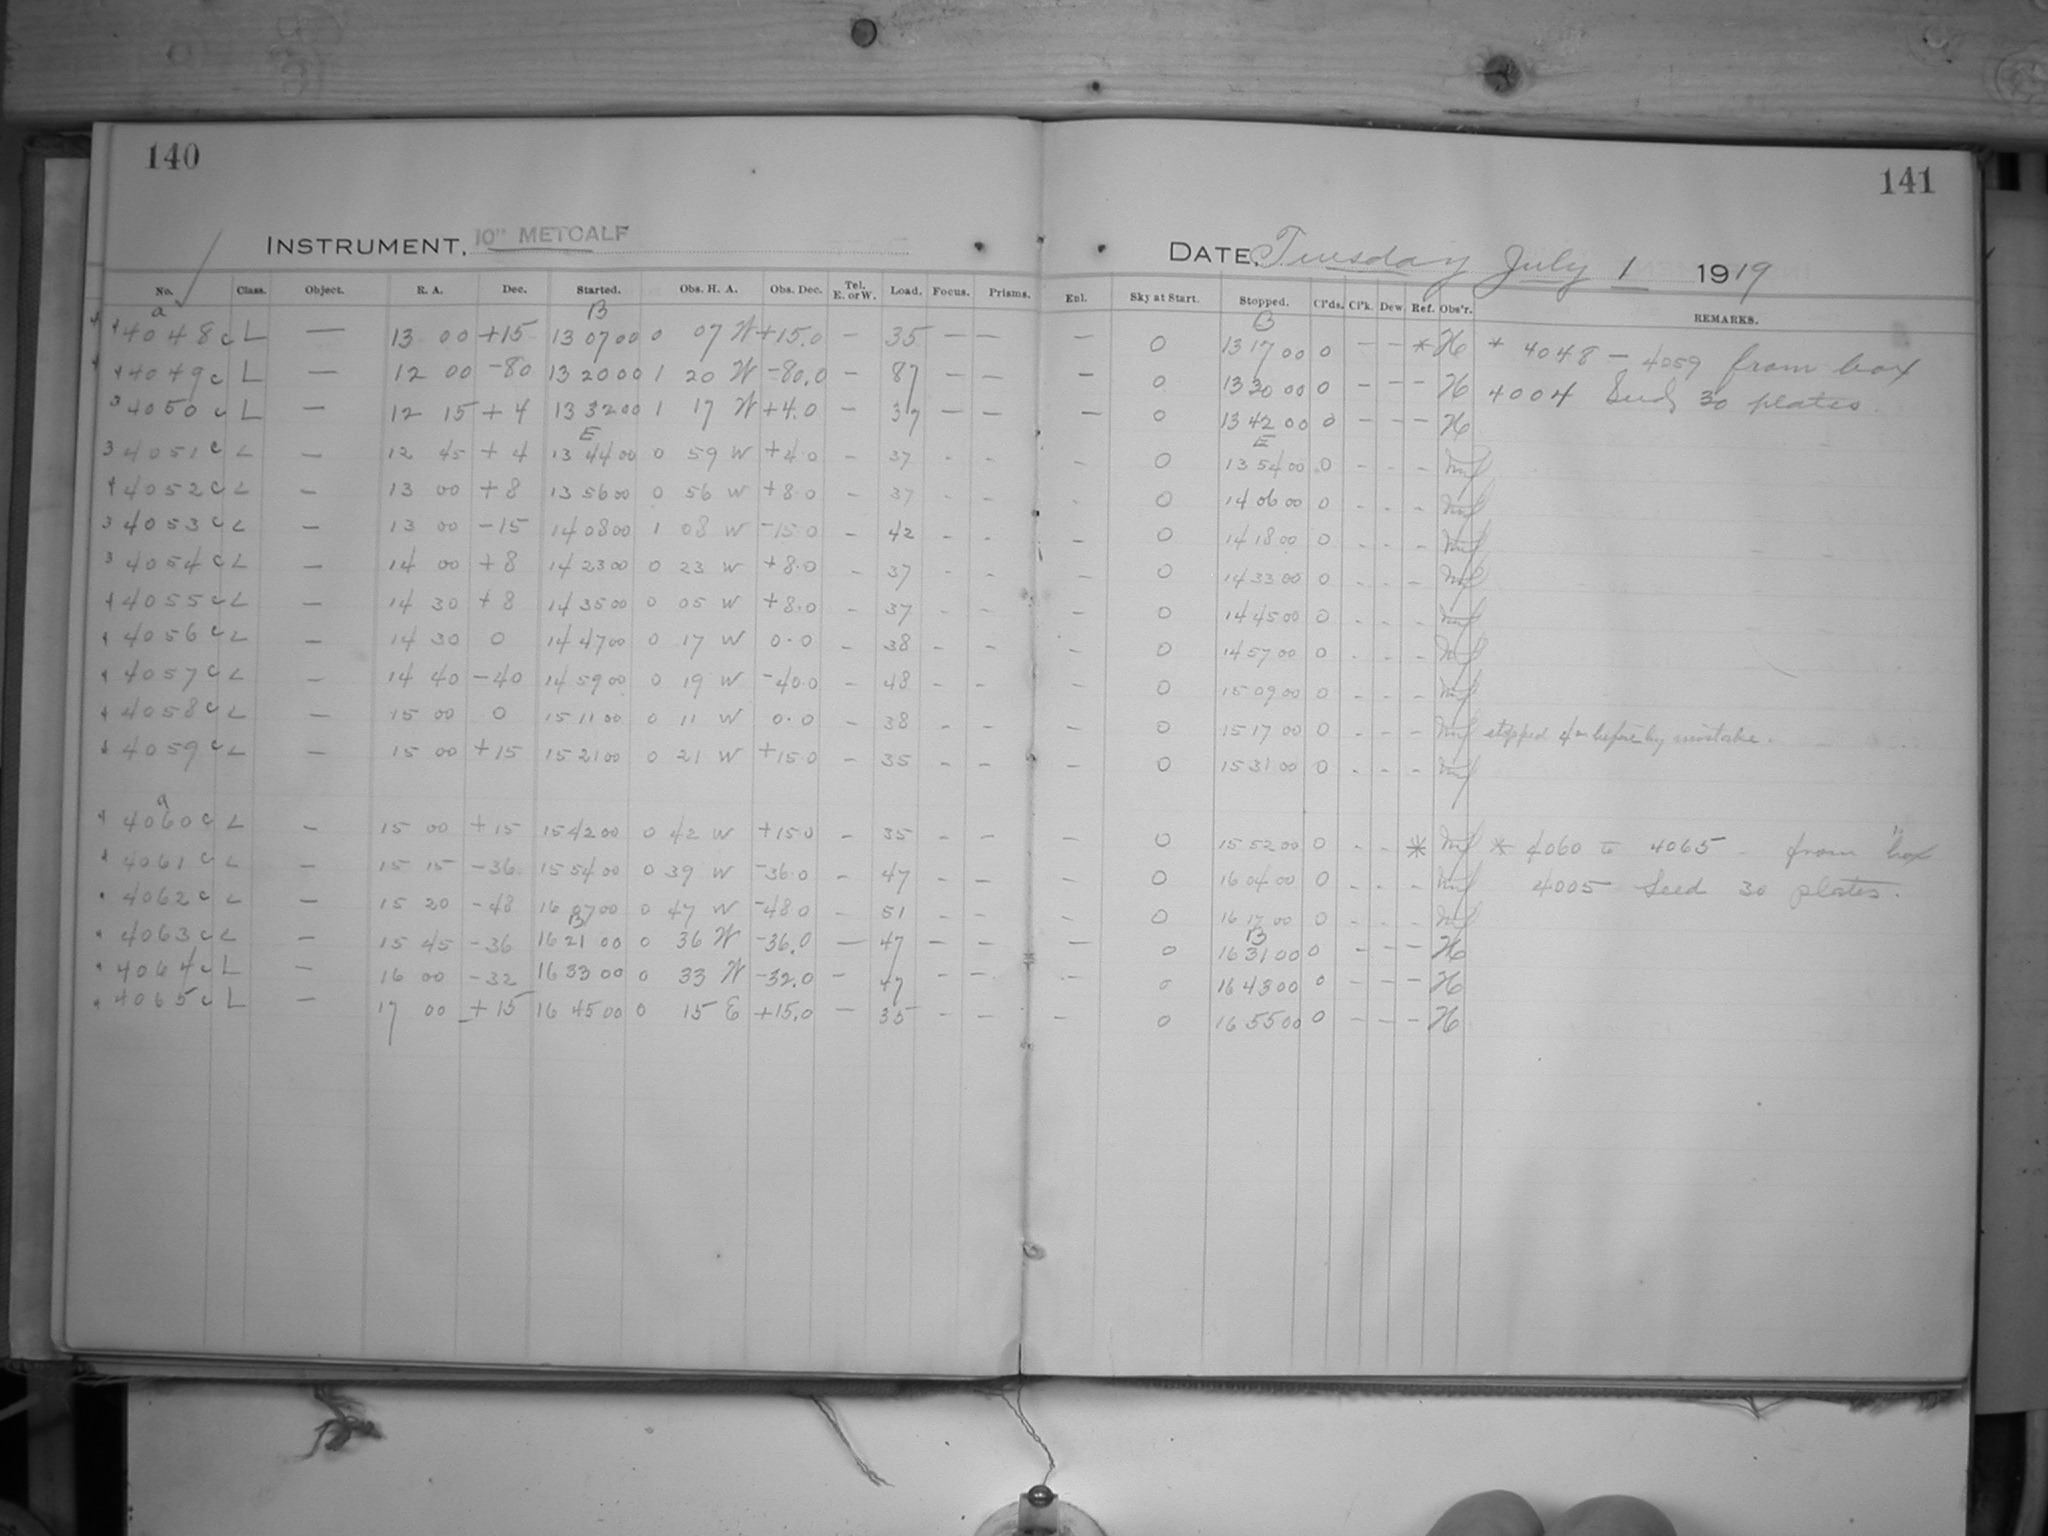 140
141
INSTRUMENT, 10" METCALF
DATE, Tuesday July 1 1919
No. Class. Object. R. A. Dec. Started. Obs. H. A. Obs. Dec. Tel. E. or W. Load. Focus. Prisms. Enl. Sky at Start. Stopped. Cl'ds. Cl'k. Dew. Ref. Obs'r. REMARKS.
a B B
4048 c L — 13 00 +15 13 07 00 0 07 W +15.0 — 35 — — — 0 13 17 00 0 — — * H * 4048 — 4059 from box
4049 c L — 12 00 -80 13 20 00 1 20 W -80.0 — 87 — — — 0 13 30 00 0 - - - H 4004 Seed 30 plates.
3 4050 c L — 12 15 +4 13 32 00 1 17 W +4.0 — 37 — — — 0 13 42 00 0 - - - H
E E
3 4051 c L — 12 45 +4 13 44 00 0 59 W +4.0 - 37 - - - 0 13 54 00 0 - - -
4052 c L — 13 00 +8 13 56 00 0 56 W +8.0 - 37 - - - 0 14 06 00 0 - - -
3 4053 c L — 13 00 -15 14 08 00 1 08 W -15.0 - 42 - - - 0 14 18 00 0 - - -
3 4054 c L — 14 00 +8 14 23 00 0 23 W +8.0 - 37 - - - 0 14 33 00 0 - - -
4055 c L — 14 30 +8 14 35 00 0 05 W +8.0 - 37 - - - 0 14 45 00 0 - - -
4056 c L — 14 30 0 14 47 00 0 17 W 0.0 - 38 - - - 0 14 57 00 0 - - -
4057 c L — 14 40 -40 14 59 00 0 19 W -40.0 - 48 - - - 0 15 09 00 0 - - -
4058 c L — 15 00 0 15 11 00 0 11 W 0.0 - 38 - - - 0 15 17 00 0 - - - stopped 4m before by mistake.
4059 c L — 15 00 +15 15 21 00 0 21 W +15.0 - 35 - - - 0 15 31 00 0 - - -
a
4060 c L — 15 00 +15 15 42 00 0 42 W +15.0 - 35 - - - 0 15 52 00 0 - - * * 4060 to 4065 - from box
4061 c L — 15 15 -36 15 54 00 0 39 W -36.0 - 47 - - - 0 16 04 00 0 - - - 4005 Seed 30 plates.
4062 c L — 15 20 -48 16 07 00 0 47 W -48.0 - 51 - - - 0 16 17 00 0 - - -
B B
4063 c L — 15 45 -36 16 21 00 0 36 W -36.0 — 47 - - — 0 16 31 00 0 - - - H
4064 c L — 16 00 -32 16 33 00 0 33 W -32.0 - 47 - - - 0 16 43 00 0 - - - H
4065 c L — 17 00 +15 16 45 00 0 15 E +15.0 — 35 - - - 0 16 55 00 0 - - - H